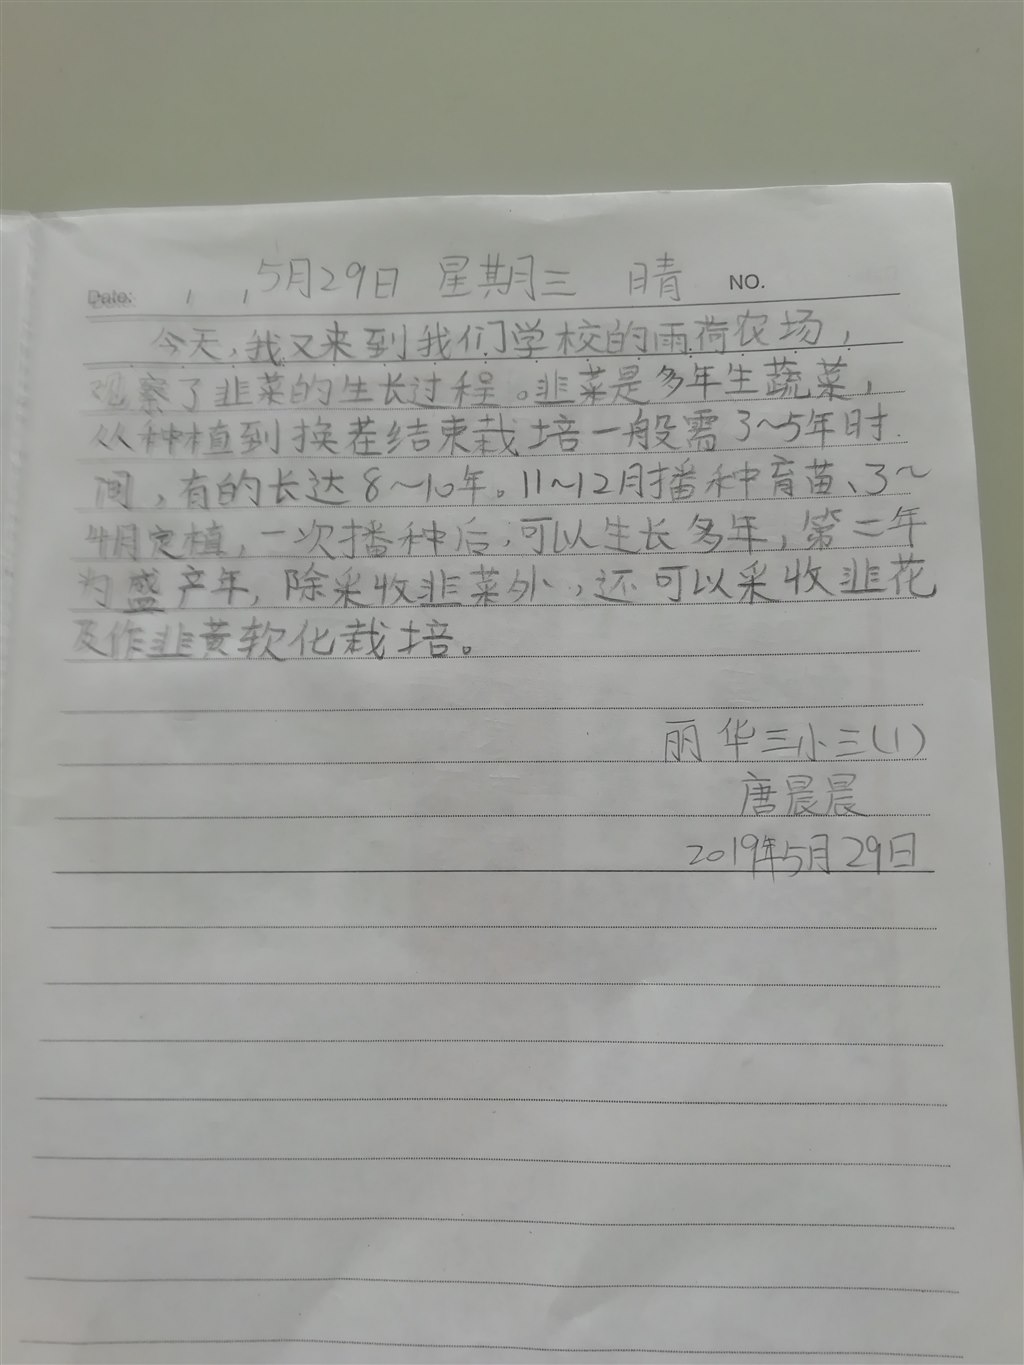 Date: 5月29日 星期三 晴 NO.
今天,我又来到我们学校的雨荷农场,
观察了韭菜的生长过程。韭菜是多年生蔬菜,
从种植到换茬结束栽培一般需3~5年时
间,有的长达8~10年。11~12月播种育苗、3~
4月定植,一次播种后,可以生长多年,第二年
为盛产年,除采收韭菜外,还可以采收韭花
及作韭黄软化栽培。
丽华三小三(1)
唐晨晨
2019年5月29日